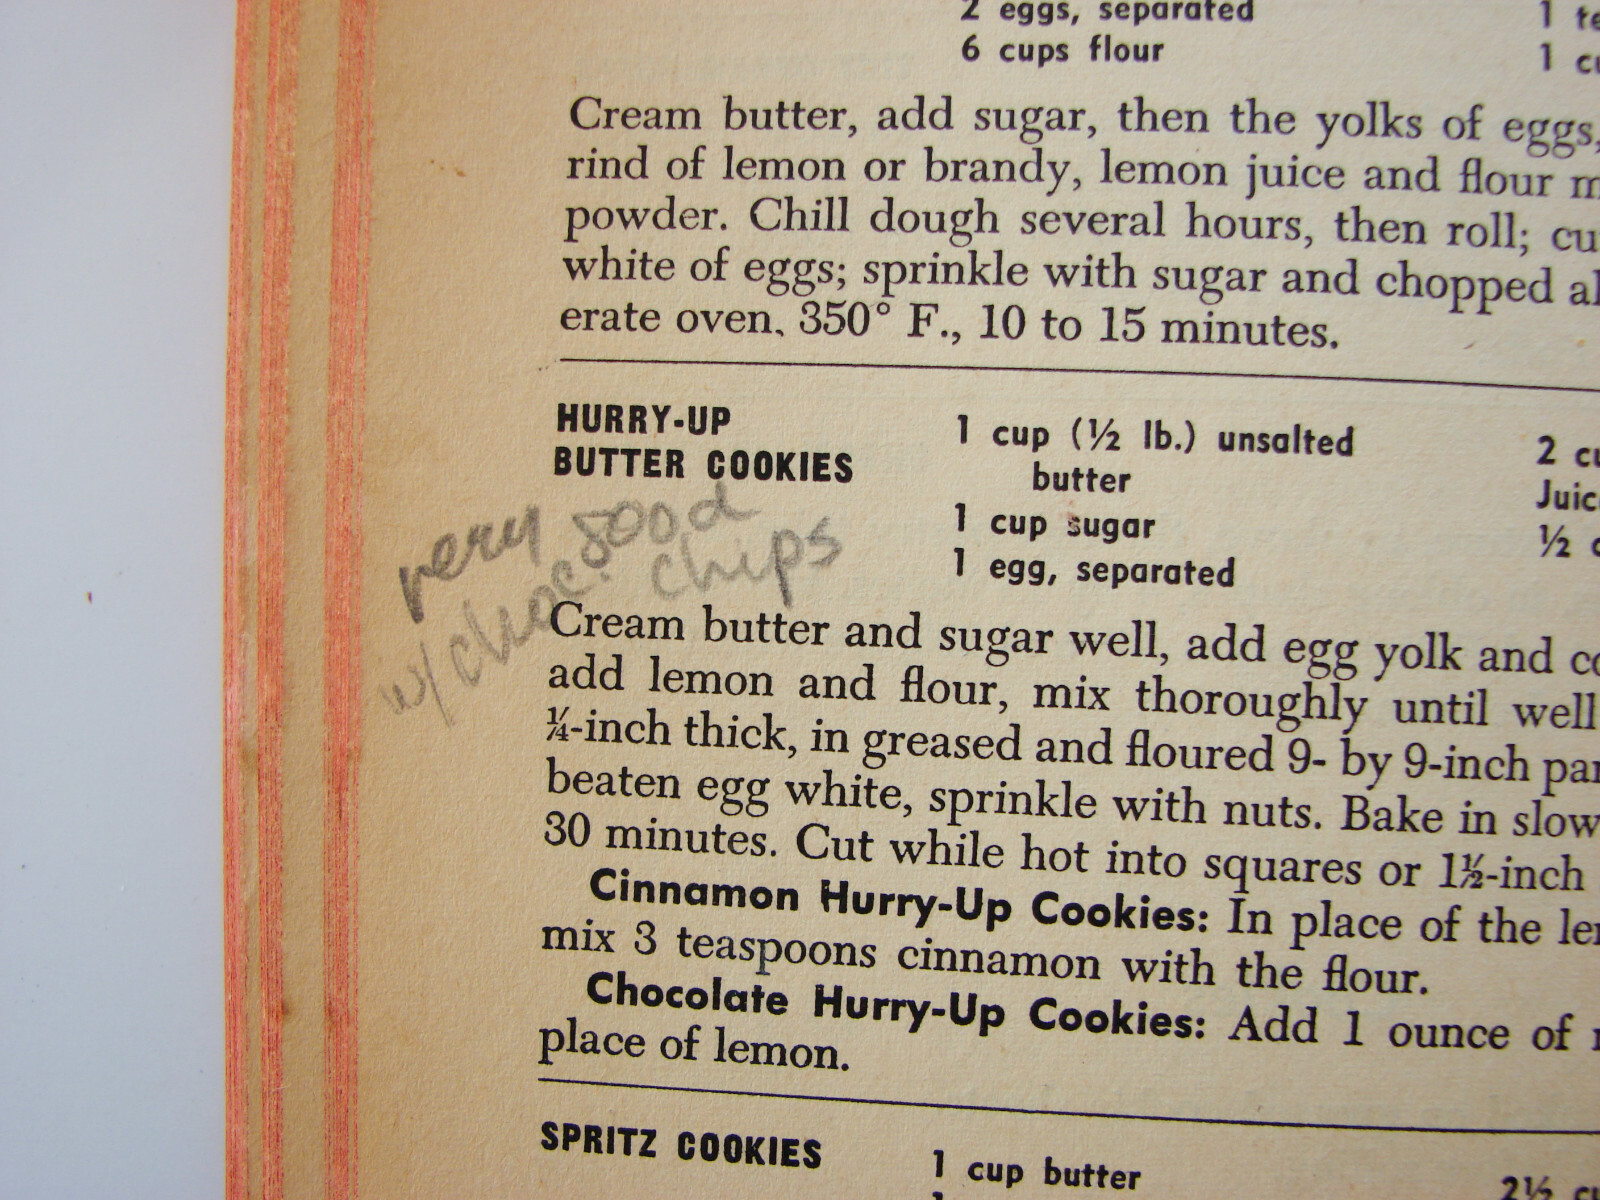 2 eggs, separated
6 cups flour
1
1
Cream butter, add sugar, then the yolks of eggs,
rind of lemon or brandy, lemon juice and flour
powder. Chill dough several hours, then roll;
white of eggs; sprinkle with sugar and chopped
erate oven, 350° F., 10 to 15 minutes.
HURRY-UP
BUTTER COOKIES
very good
w/choc. chips
1 cup (½ lb.) unsalted
butter
1 cup sugar
1 egg, separated
2
½
Cream butter and sugar well, add egg yolk and
add lemon and flour, mix thoroughly until well
¼-inch thick, in greased and floured 9- by 9-inch
beaten egg white, sprinkle with nuts. Bake in slow
30 minutes. Cut while hot into squares or 1½-inch
Cinnamon Hurry-Up Cookies: In place of the
mix 3 teaspoons cinnamon with the flour.
Chocolate Hurry-Up Cookies: Add 1 ounce of
place of lemon.
SPRITZ COOKIES
1 cup butter
2½